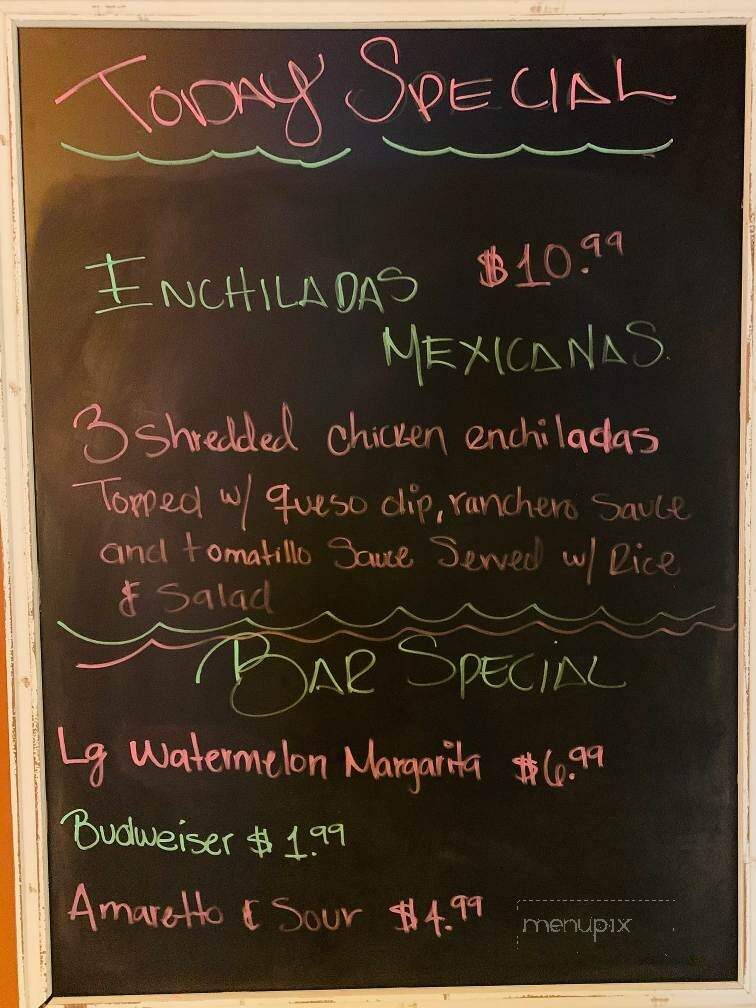 TODAY SPECIAL
ENCHILADAS $10.99
MEXICANAS
3 Shredded chicken enchiladas
Topped w/ queso dip, ranchero Sauce
and tomatillo Sauce Served w/ Rice
& Salad
BAR SPECIAL
Lg Watermelon Margarita $6.99
Budweiser $1.99
Amaretto & Sour $4.99
menupix